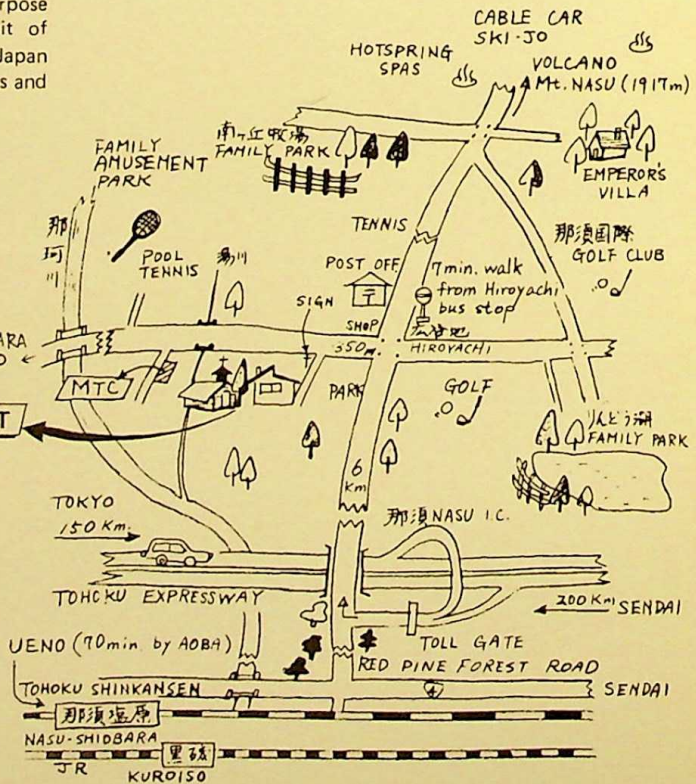 rpose
it of
Japan
s and
CABLE CAR
SKI-JO
HOTSPRING
SPAS
VOLCANO
Mt. NASU (1917m)
南ヶ丘牧場
FAMILY PARK
FAMILY
AMUSEMENT
PARK
EMPEROR'S
VILLA
那珂川
TENNIS
那須国際
GOLF CLUB
POOL
TENNIS
湯川
POST OFF.
〒
7min. walk
from Hiroyachi
bus stop
SIGN
SHOP
広谷地
ARA
O ←
350m
HIROYACHI
MTC
PARK
GOLF
T
りんどう湖
FAMILY PARK
6
Km
TOKYO
150 Km.
那須 NASU I.C.
TOHOKU EXPRESSWAY
200 Km
SENDAI
UENO (70min. by AOBA)
TOLL GATE
RED PINE FOREST ROAD
TOHOKU SHINKANSEN
4
SENDAI
那須塩原
NASU-SHIOBARA
黒磯
JR
KUROISO